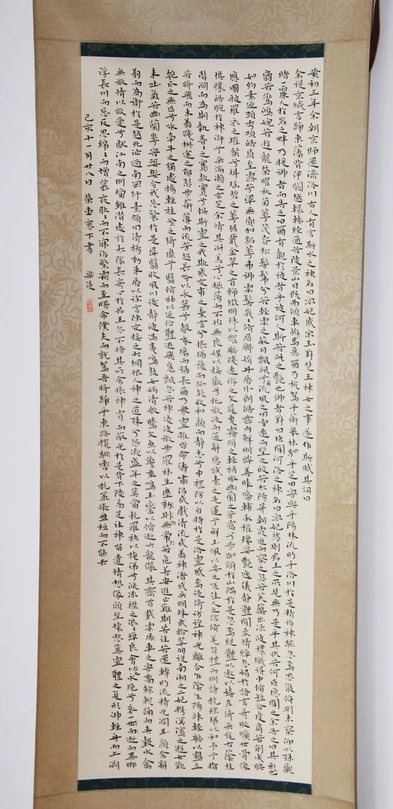 黄初三年余朝京師還濟洛川古人有言斯水之神名曰宓妃感宋玉對楚王神女之事遂作斯賦其詞曰
余從京域言歸東藩背伊闕越轘轅經通谷陵景山日既西傾車殆馬煩爾乃稅駕乎蘅皋秣駟乎芝田容與乎陽林流眄乎洛川於是精移神駭忽焉思散俯則未察仰以殊觀
睹一麗人于岩之畔乃援御者而告之曰爾有覿於彼者乎彼何人斯若此之艷也御者對曰臣聞河洛之神名曰宓妃然則君王之所見無乃是乎其狀若何臣願聞之余告之曰其形也
翩若驚鴻婉若遊龍榮曜秋菊華茂春松髣髴兮若輕雲之蔽月飄颻兮若流風之迴雪遠而望之皎若太陽升朝霞迫而察之灼若芙蕖出淥波襛纖得中修短合度肩若削成腰
如約素延頸秀項皓質呈露芳澤無加鉛華弗御雲髻峩峩修眉聯娟丹唇外朗皓齒內鮮明眸善睞靨輔承權瓌姿艷逸儀靜體閑柔情綽態媚於語言奇服曠世骨像
應圖披羅衣之璀粲兮珥瑤碧之華琚戴金翠之首飾綴明珠以耀軀踐遠遊之文履曳霧綃之輕裾微幽蘭之芳藹兮步踟躕於山隅於是忽焉縱體以遨以嬉左倚采旄右蔭桂
旗攘皓腕於神滸兮采湍瀨之玄芝余情悅其淑美兮心振蕩而不怡無良媒以接歡兮托微波而通辭願誠素之先達兮解玉佩以要之嗟佳人之信修羌習禮而明詩抗瓊珶以和予兮指
潛淵而為期執眷眷之款實兮懼斯靈之我欺感交甫之棄言兮悵猶豫而狐疑收和顏而靜志兮申禮防以自持於是洛靈感焉徙倚彷徨神光離合乍陰乍陽竦輕軀以鶴立
若將飛而未翔踐椒塗之郁烈步蘅薄而流芳超長吟以永慕兮聲哀厲而彌長爾乃眾靈雜遝命儔嘯侶或戲清流或翔神渚或采明珠或拾翠羽從南湘之二妃攜漢濱之遊女歎
匏瓜之無匹兮詠牽牛之獨處揚輕袿之猗靡兮翳修袖以延佇體迅飛鳧飄忽若神凌波微步羅襪生塵動無常則若危若安進止難期若往若還轉眄流精光潤玉顏含辭
未吐氣若幽蘭華容婀娜令我忘餐於是屏翳收風川后靜波馮夷鳴鼓女媧清歌騰文魚以警乘鳴玉鸞以偕逝六龍儼其齊首載雲車之容裔鯨鯢踊而夾轂水禽
翔而為衛於是越北沚過南岡紆素領迴清陽動朱唇以徐言陳交接之大綱恨人神之道殊兮怨盛年之莫當抗羅袂以掩涕兮淚流襟之浪浪悼良會之永絕兮哀一逝而異鄉
無微情以效愛兮獻江南之明璫雖潛處於太陰長寄心於君王忽不悟其所舍悵神宵而蔽光於是背下陵高足往神留遺情想像顧望懷愁冀靈體之復形御輕舟而上溯
浮長川而忘反思綿綿而增慕夜耿耿而不寐霑繁霜而至曙命僕夫而就駕吾將歸乎東路攬騑轡以抗策悵盤桓而不能去
己亥十一月廿八日 下書